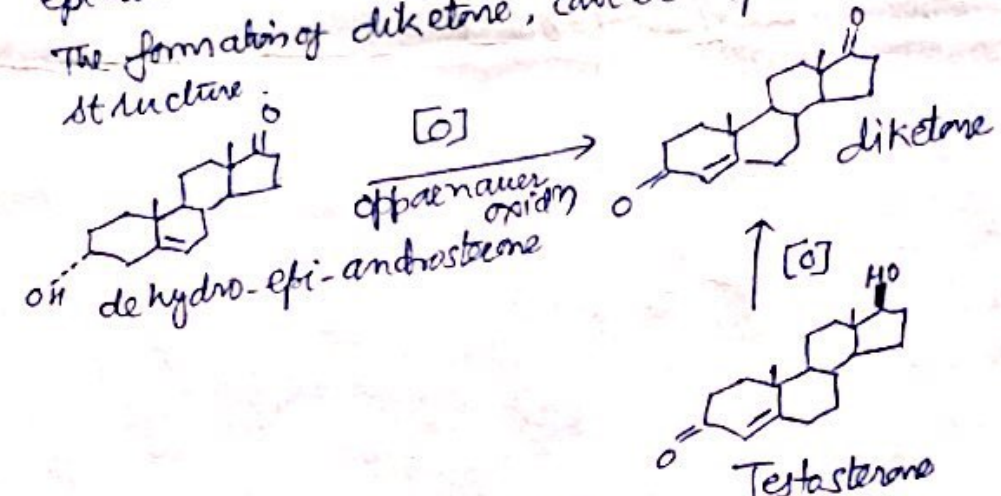 The formation of diketone,
structure.
O
O
[O]
oppaenauer
oxidn
diketone
O
OH
dehydro-epi-androsterone
[O]
HO
O
Testosterone